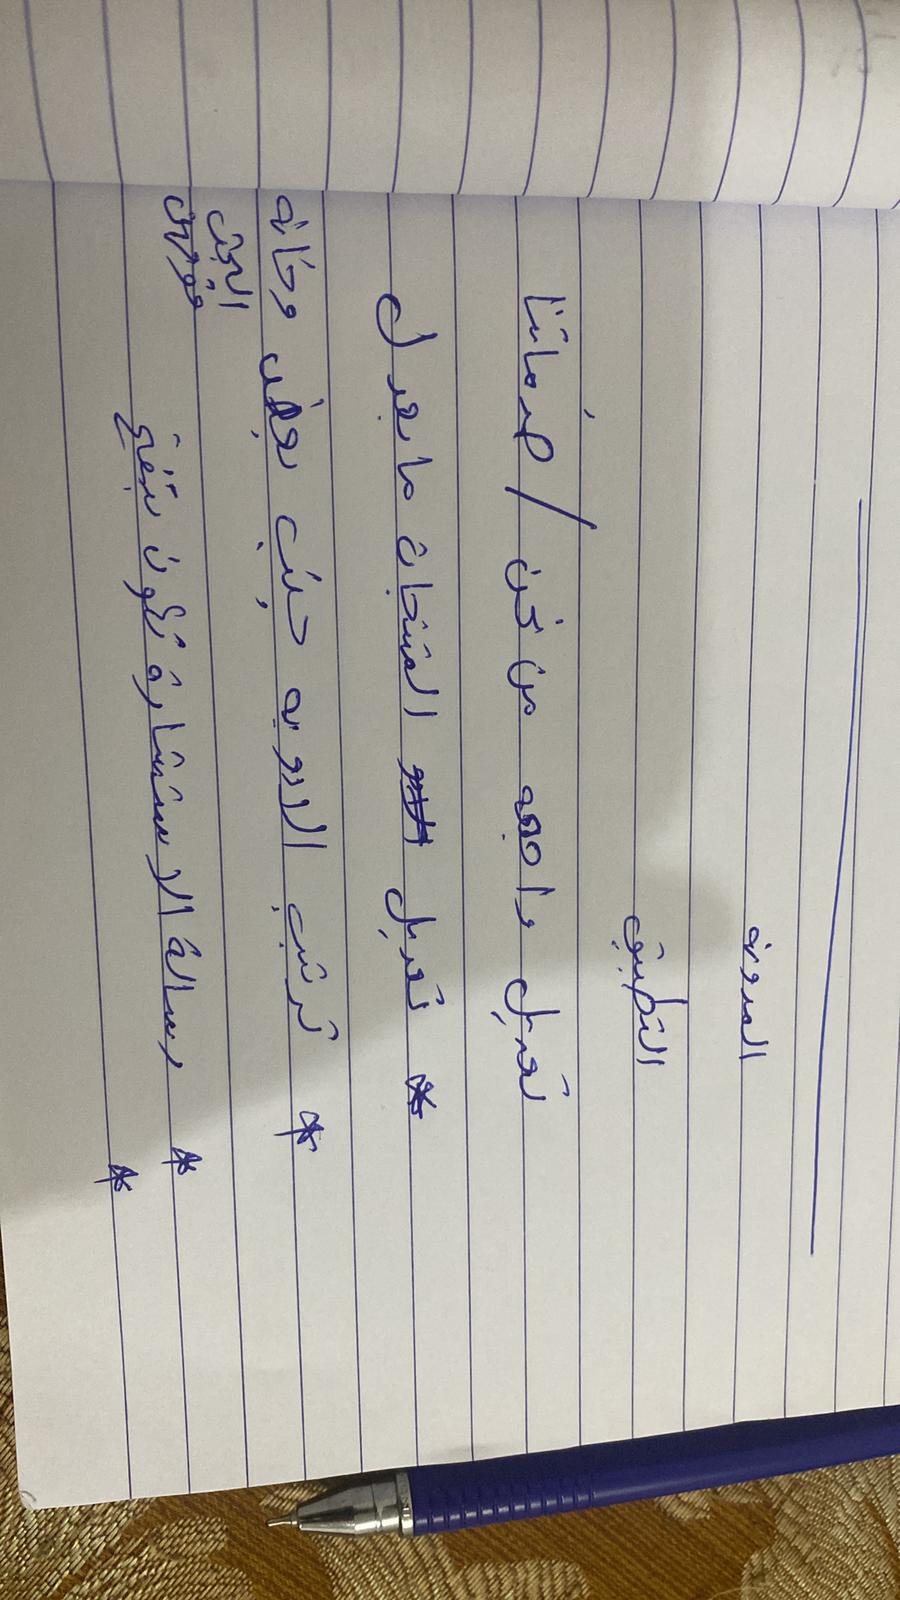 المدونه
التطبيق
تعديل واجهه من نحن / خدماتنا
* تعديل المنتجات ما يعدل
* ترتيب الادويه جنب بعض وخانه
البحث
فوقهن
* رسالة الاستشارة تكون بتفتح
*